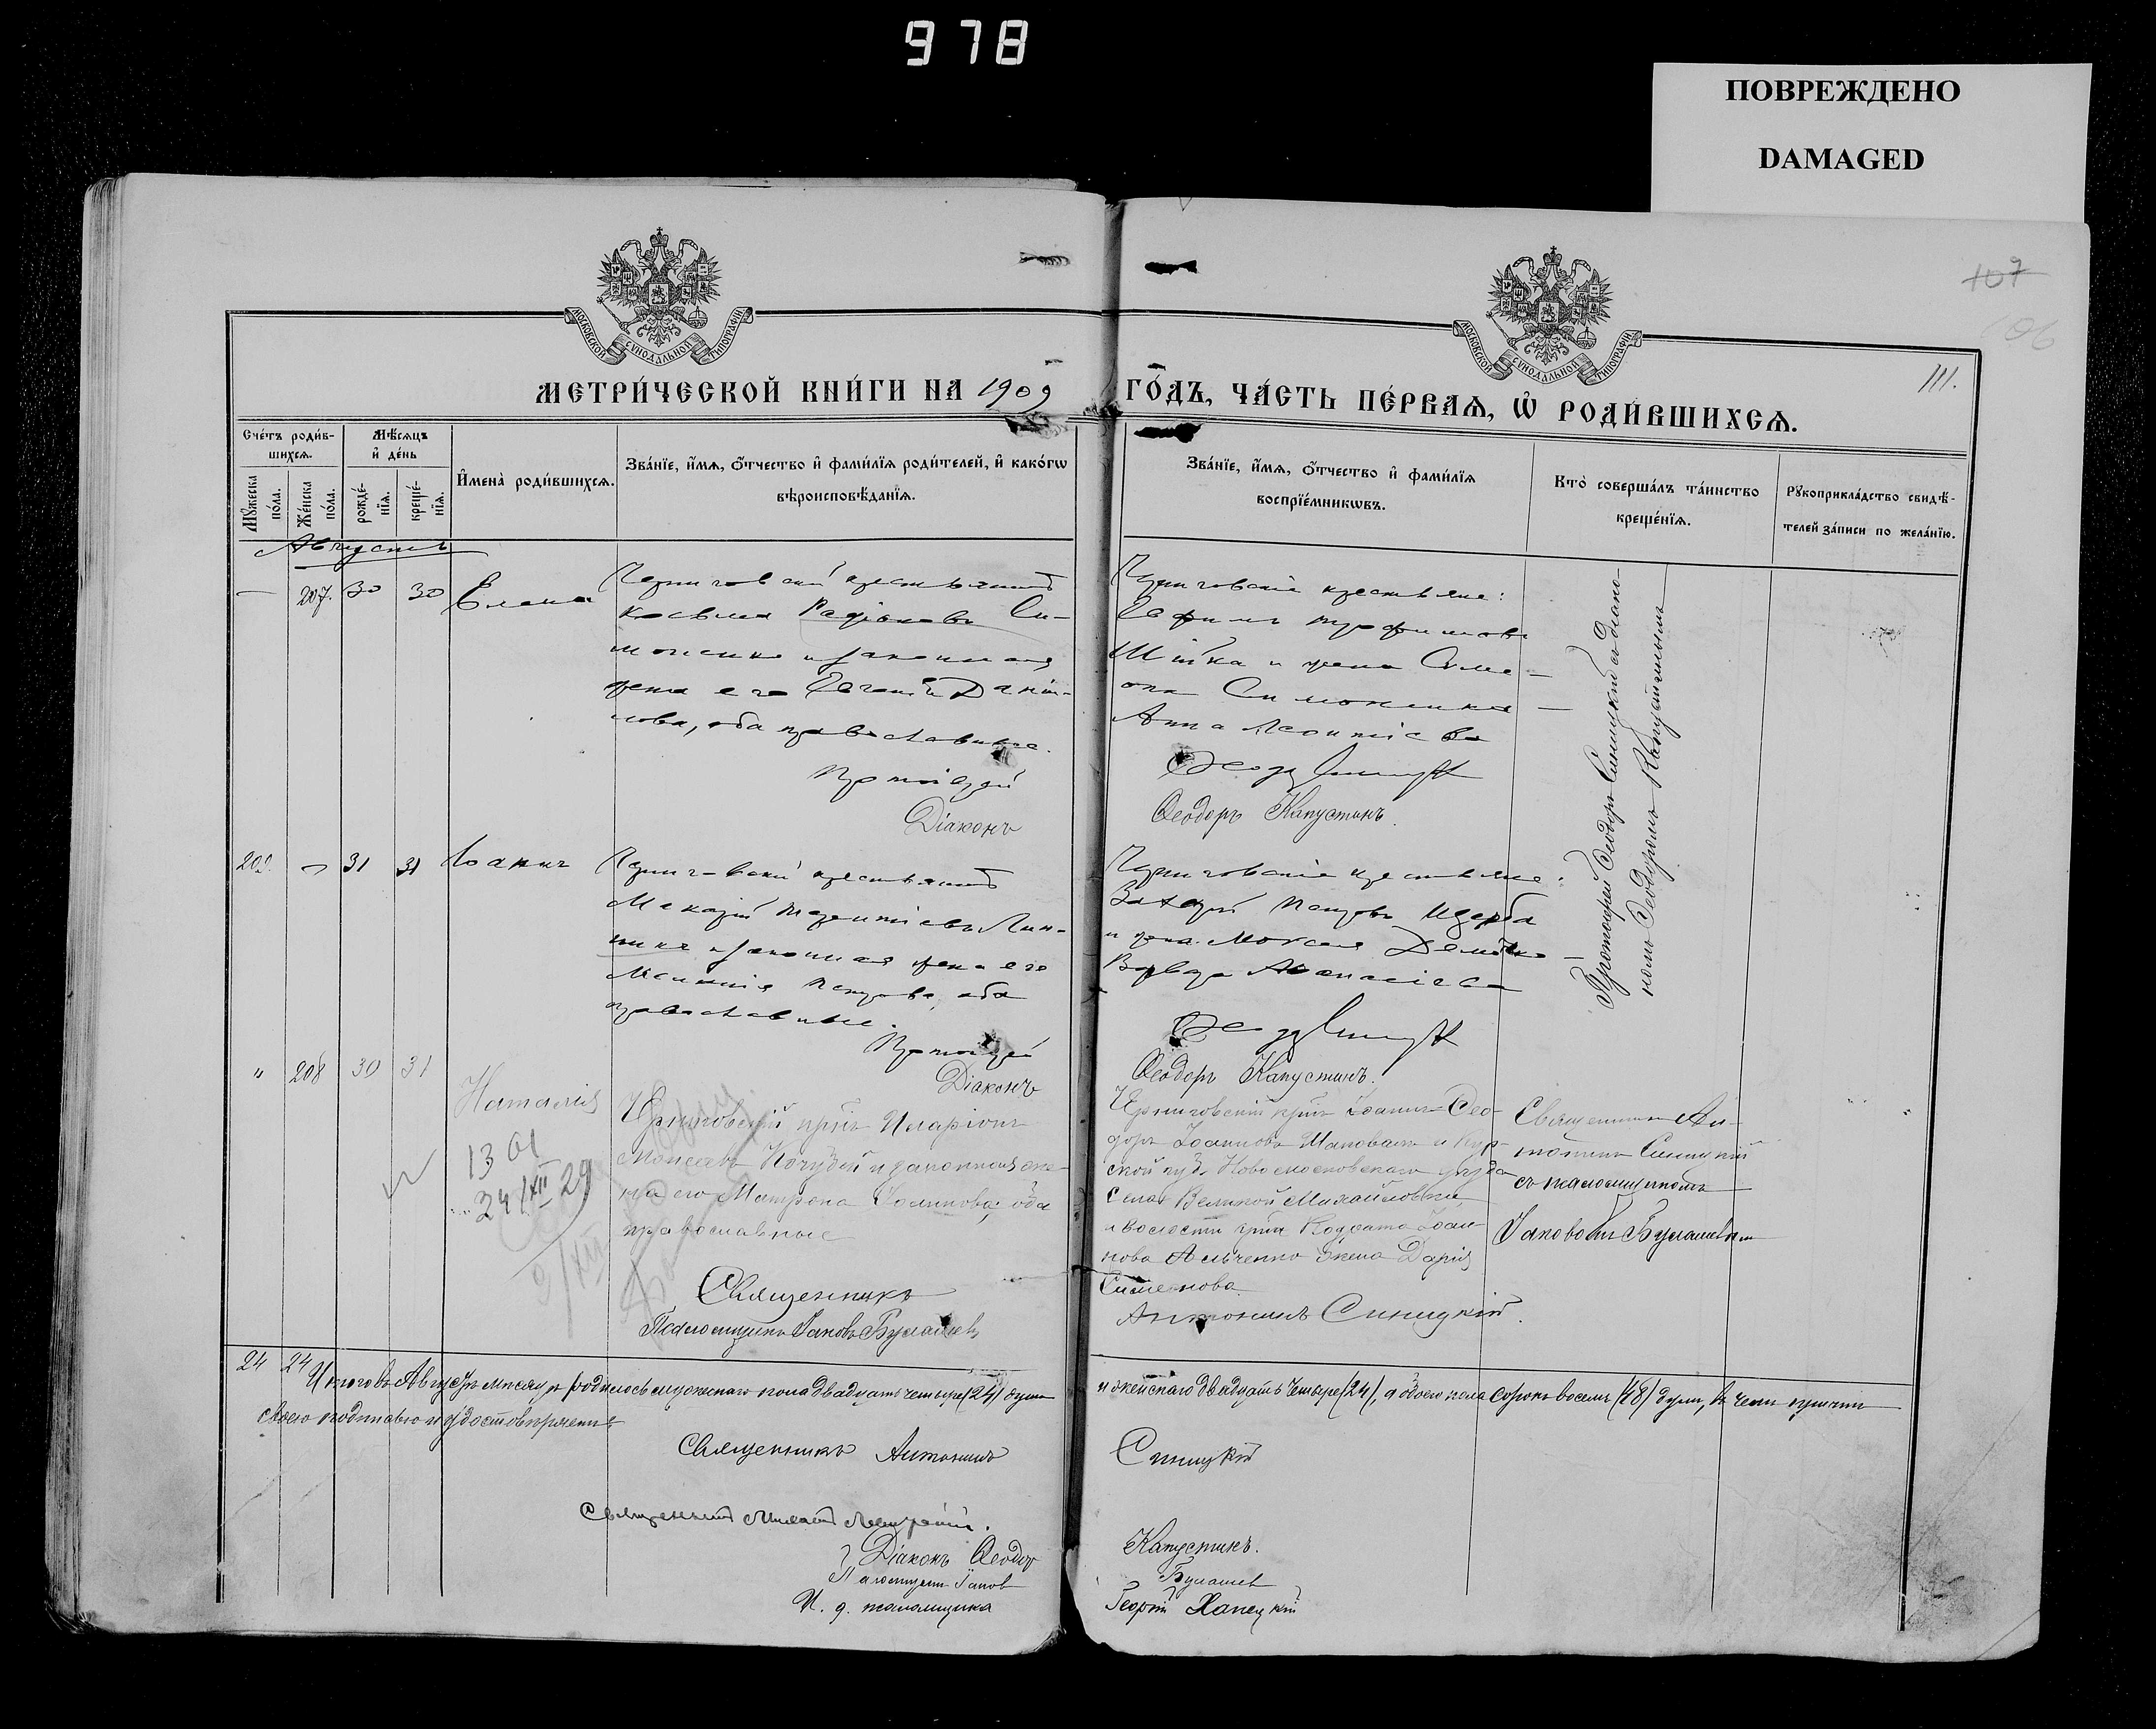 978
ПОВРЕЖДЕНО
DAMAGED
МОСКОВСКОЙ СѴНОДАЛЬНОЙ ТИПОГРАФІИ
МОСКОВСКОЙ СѴНОДАЛЬНОЙ ТИПОГРАФІИ
107
106
111.
МЕТРИ́ЧЕСКОЙ КНИ́ГИ НА 1909 ГО́ДЪ, ЧА́СТЬ ПЕ́РВАѦ, Ѡ҆ РОДИ́ВШИХСѦ.
Сче́тъ роди́в-
шихсѧ.
Мѣ́сѧцъ
и҆ де́нь
Мꙋ́жеска
по́ла.
Же́нска
по́ла.
рожде́-
нїѧ.
креще́-
нїѧ.
И҆мена̀ роди́вшихсѧ.
Зва́нїе, и҆́мѧ, ѻ҆́тчество и҆ фами́лїѧ роди́телей, и҆ како́гѡ
вѣроисповѣ́данїѧ.
Зва́нїе, и҆́мѧ, ѻ҆́тчество и҆ фами́лїѧ
воспрїе́мникѡвъ.
Кто̀ соверша́лъ та́инство
креще́нїѧ.
Рꙋкоприкла́дство свидѣ́-
телей за́писи по жела́нїю.
Августъ
— 207. 30 30 Елена
Черниговскій крестьянинъ
Косьма Радіоновъ Си-
моненко и законная
жена его Евгенія Данiи-
лова, оба православные.
Протоіерей
Діаконъ
Черниговскіе крестьяне:
Ефимъ Трофимовъ
и жена Симе-
она Симоненка
Анна Леонтіева
Ѳеодоръ Капустинъ.
Протоіерей Ѳеодоръ Синицкій съ діако-
номъ Ѳеодоромъ Капустинымъ
31 31 Іоаннъ
Черниговскій крестьянинъ
Макарій Терентіевъ Лин-
ника и законная жена его
Петрова, оба
православные.
Протоіерей
Діаконъ
Черниговскіе крестьяне:
Захарій Петровъ Щерба
и жена Моисея
Варвара Аѳанасіева
Ѳеодоръ Капустинъ.
" 208 30 31 Наталія
13 01
24/XII 29
Черниговскій кр-нъ Иларіонъ
Моисеевъ и законная же-
на его Матрона Іоаннова, оба
православные
Священникъ
Псаломщикъ Іаковъ Булашевъ
Черниговскій кр-нъ Ѳео-
доръ Іоанновъ и Кур-
ской губ. Новооскольскаго уѣзда
села Великой Михайловки
и волости
нова жена Дарія
Симеонова.
Антонинъ Синицкій.
Священникъ Ан-
тонинъ Синицкій
съ псаломщикомъ
Іаковомъ Булашевымъ
24 24
Итого въ Августѣ мѣсяцѣ родилось мужескаго пола двадцать четыре (24) души и женскаго двадцать четыре (24), а обоего пола сорокъ восемь (48) душъ, въ чемъ
своею подписью и удостовѣряемъ
Священникъ Антонинъ Синицкій
Священникъ
Діаконъ Ѳеодоръ Капустинъ.
Псаломщикъ Іаковъ Булашевъ
И. д. псаломщика Георгій Ханецкій